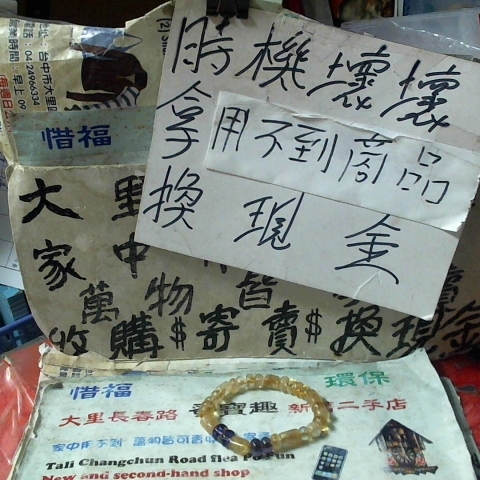 地址：台中市大里區
電話：0424966334
營業時間：早上09
惜福
時機壞壞
拿用不到商品
換現金
大里
家中
萬物皆
收購$寄賣$換現金
惜福 環保
大里長春路 寶趣 新 二手店
家中用不到 萬物皆可
Tali Changchun Road flea Fun
New and second-hand shop